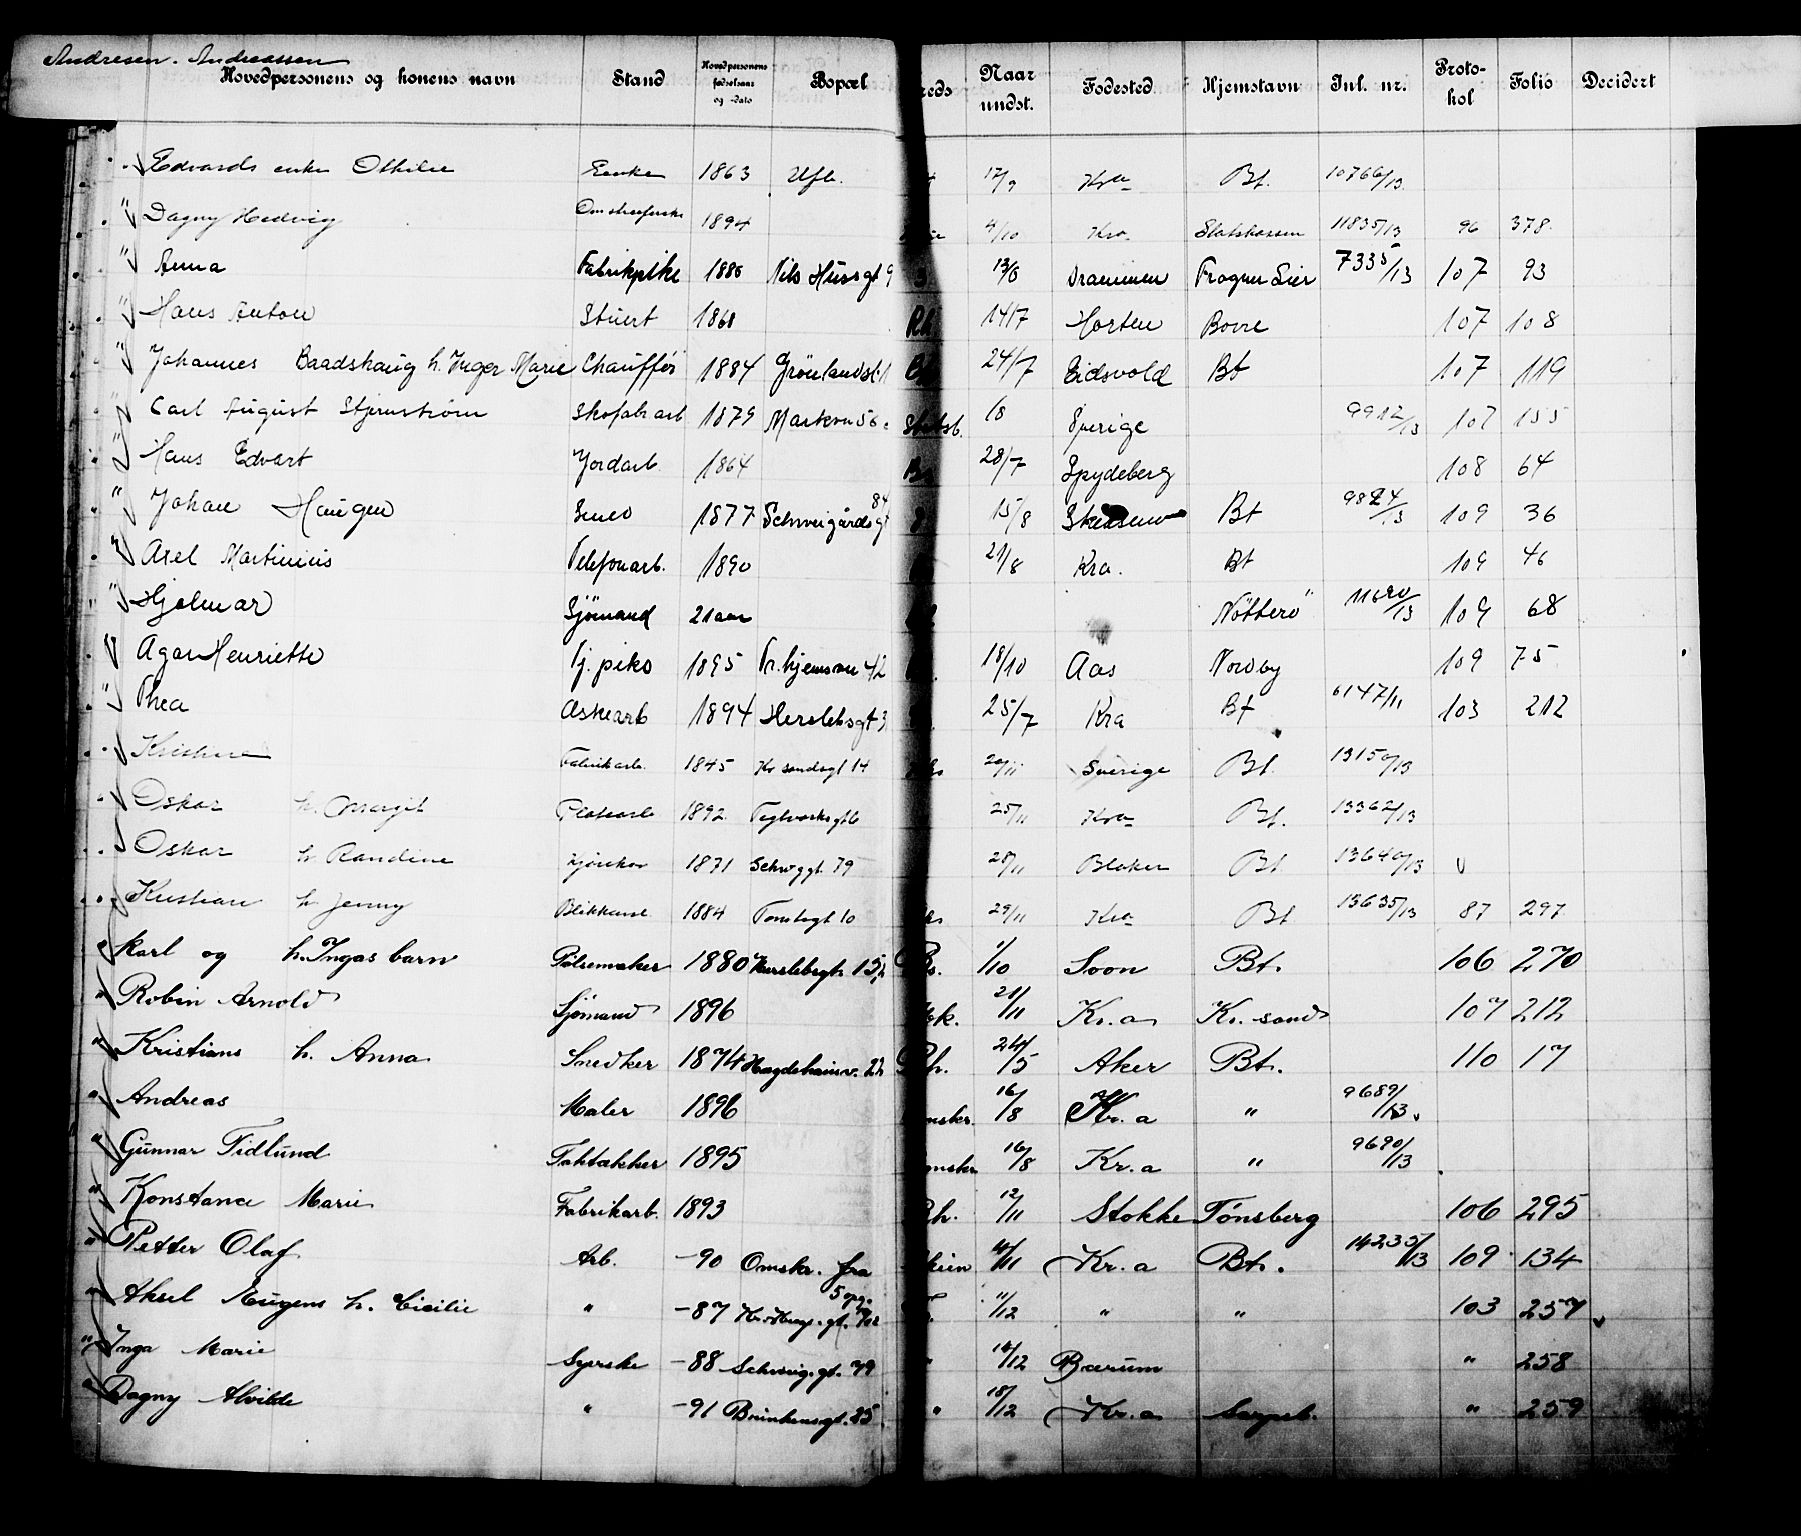 Andresen. Andreassen
Hovedpersonens og konens navn Stand Hovedpersonens fødselsaar og -dato Bopæl reds Naar undst. Fødested Hjemstavn Inl. nr. Proto-kol Folio Decidert
Edvards enke Othilie Enke 1863 Ufb. 17/9 Kra Bt. 10766/13
" Dagny Hedvig 1894 4/10 Kra. Statskassen 11835/13 96 378.
" Anna Fabrikpike 1886 Nils Hussgt 9 13/6 Drammen Frogner Lier 7335/13 107 93
" Hans Anton Stuert 1868 Rh 14/7 Horten Borre 107 108
" Johannes Baadshaug h. Inger Marie Chauffør 1884 Grönlandsl. 24/7 Eidsvold Bt 107 119
" Carl August Stjernstrøm Skofabr arb 1879 Markvn 56 18 Sverige 9912/13 107 155
" Hans Edvart Jordarb. 1864 28/7 Spydeberg 108 64
" Johan Haugen 1877 Schweigårdsgt 84 15/8 Bt 9824/13 109 36
" Axel Martinius Telefonarb. 1890 21/8 Kra. Bt 109 46
" Hjalmar Sjömand 21 aar Nötterö 11620/13 109 68
" Agar Henriette Tj. pike 1895 42 18/10 Aas Nordby 109 75
" Thea Æskearb 1894 Herslebsgt 3 25/7 Kra Bt 6147/11 103 212
" Kristine Fabrikarb. 1845 Kr sandsgt 14 20/11 Sverige Bt. 13150/13
" Oskar h. Margit 1892. Teglverksgt 6 25/11 Kra Bt. 13362/13
" Oskar h. Randine Kjørekar 1871 Schwggt. 79 28/11 Blaker Bt 13640/13
" Kristian h. Jenny Blikkensl 1884 Tomtegt 10 29/11 Kra Bt 13635/13 87 297
" Karl og h. Ingas barn Pølsemaker 1880 Herslebsgt. 15 Bs. 1/10 Soon Bt. 106 270
" Robin Arnold Sjømand 1896 21/11 Kr.a Kr. sand 107 212
" Kristians h. Anna Snedker 1874 Hagdehaugv. 22 Rh. 24/5 Aker Bt. 110 17
" Andreas Maler 1896 omskr. 16/8 Kr.a " 9689/13
" Gunnar Tidlund Taktækker 1895 omskr 16/8 Kr.a " 9690/13
" Konstance Marie Fabrikarb. 1893 Rh. 12/11 Stokke Tønsberg 106 295
" Petter Olaf Arb. -90 Omskr. fra Skien 14/11 Kr.a Bt. 14235/13 109 134
" Aksel Eugens h. Cicilie " -87 11/12 " " 103 257
" Inga Marie Syerske -88 Schweig.gt. 79 " 14/12 Bærum " 258
" Dagny Alvilde " -91 Brinkensgt. 25 " 18/12 Kr.a Sarpsb. " 259